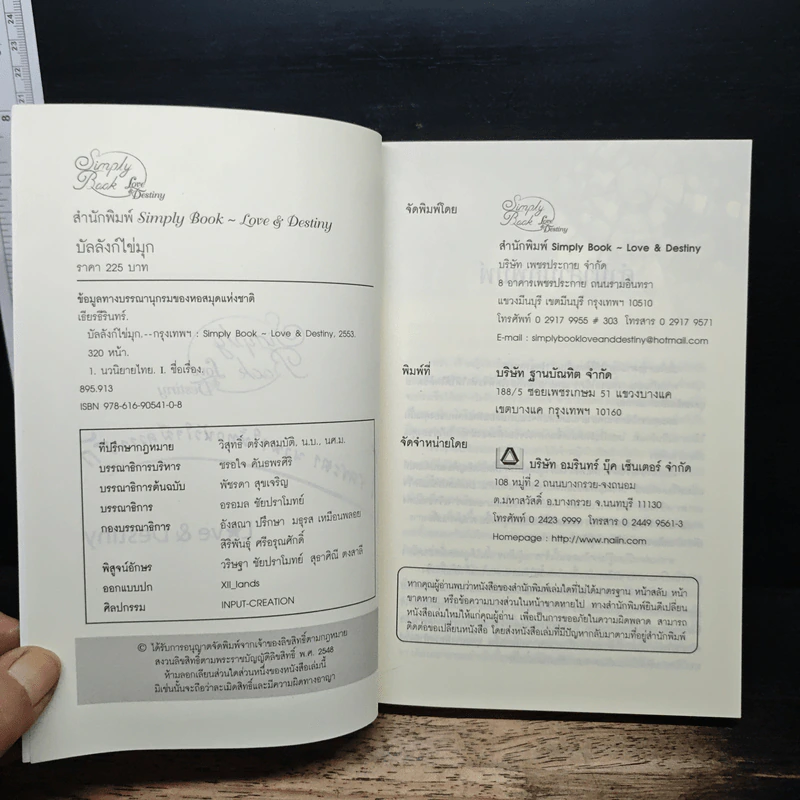 Simply Book Love & Destiny
สำนักพิมพ์ Simply Book ~ Love & Destiny
บัลลังก์ไข่มุก
ราคา 225 บาท
ข้อมูลทางบรรณานุกรมของหอสมุดแห่งชาติ
เธียรธีรินทร์.
บัลลังก์ไข่มุก.--กรุงเทพฯ : Simply Book ~ Love & Destiny, 2553.
320 หน้า.
1. นวนิยายไทย. I. ชื่อเรื่อง.
895.913
ISBN 978-616-90541-0-8
ที่ปรึกษากฎหมาย วิสุทธิ์ ตรังคสมบัติ, น.บ., นศ.ม.
บรรณาธิการบริหาร ชรอใจ คันธพรศิริ
บรรณาธิการต้นฉบับ พัชรดา สุขเจริญ
บรรณาธิการ อรอมล ชัยปราโมทย์
กองบรรณาธิการ อังสณา ปรึกษา มธุรส เหมือนพลอย
สิริพันธุ์ ศรีอรุณศักดิ์
พิสูจน์อักษร วริษฐา ชัยปราโมทย์ สุธาศิณี ดงสาลี
ออกแบบปก XII_lands
ศิลปกรรม INPUT-CREATION
© ได้รับการอนุญาตจัดพิมพ์จากเจ้าของลิขสิทธิ์ตามกฎหมาย
สงวนลิขสิทธิ์ตามพระราชบัญญัติลิขสิทธิ์ พ.ศ. 2548
ห้ามลอกเลียนส่วนใดส่วนหนึ่งของหนังสือเล่มนี้
มิเช่นนั้นจะถือว่าละเมิดสิทธิ์และมีความผิดทางอาญา
จัดพิมพ์โดย Simply Book Love & Destiny
สำนักพิมพ์ Simply Book ~ Love & Destiny
บริษัท เพชรประกาย จำกัด
8 อาคารเพชรประกาย ถนนรามอินทรา
แขวงมีนบุรี เขตมีนบุรี กรุงเทพฯ 10510
โทรศัพท์ 0 2917 9955 # 303 โทรสาร 0 2917 9571
E-mail : simplybookloveanddestiny@hotmail.com
พิมพ์ที่ บริษัท ฐานบัณฑิต จำกัด
188/5 ซอยเพชรเกษม 51 แขวงบางแค
เขตบางแค กรุงเทพฯ 10160
จัดจำหน่ายโดย
บริษัท อมรินทร์ บุ๊ค เซ็นเตอร์ จำกัด
108 หมู่ที่ 2 ถนนบางกรวย-จงถนอม
ต.มหาสวัสดิ์ อ.บางกรวย จ.นนทบุรี 11130
โทรศัพท์ 0 2423 9999 โทรสาร 0 2449 9561-3
Homepage : http://www.naiin.com
หากคุณผู้อ่านพบว่าหนังสือของสำนักพิมพ์เล่มใดที่ไม่ได้มาตรฐาน หน้าสลับ หน้า
ขาดหาย หรือข้อความบางส่วนในหน้าขาดหายไป ทางสำนักพิมพ์ยินดีเปลี่ยน
หนังสือเล่มใหม่ให้แก่คุณผู้อ่าน เพื่อเป็นการขออภัยในความผิดพลาด สามารถ
ติดต่อขอเปลี่ยนหนังสือ โดยส่งหนังสือเล่มที่มีปัญหากลับมาตามที่อยู่สำนักพิมพ์